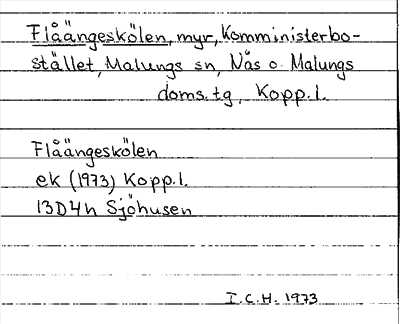 Flåängeskölen, myr, Komministerbo-
stället, Malungs sn, Nås o. Malungs
doms.tg, Kopp.l.
Flåängeskölen
ek (1973) Kopp.l.
13D4h Sjöhusen
I.C.H. 1973